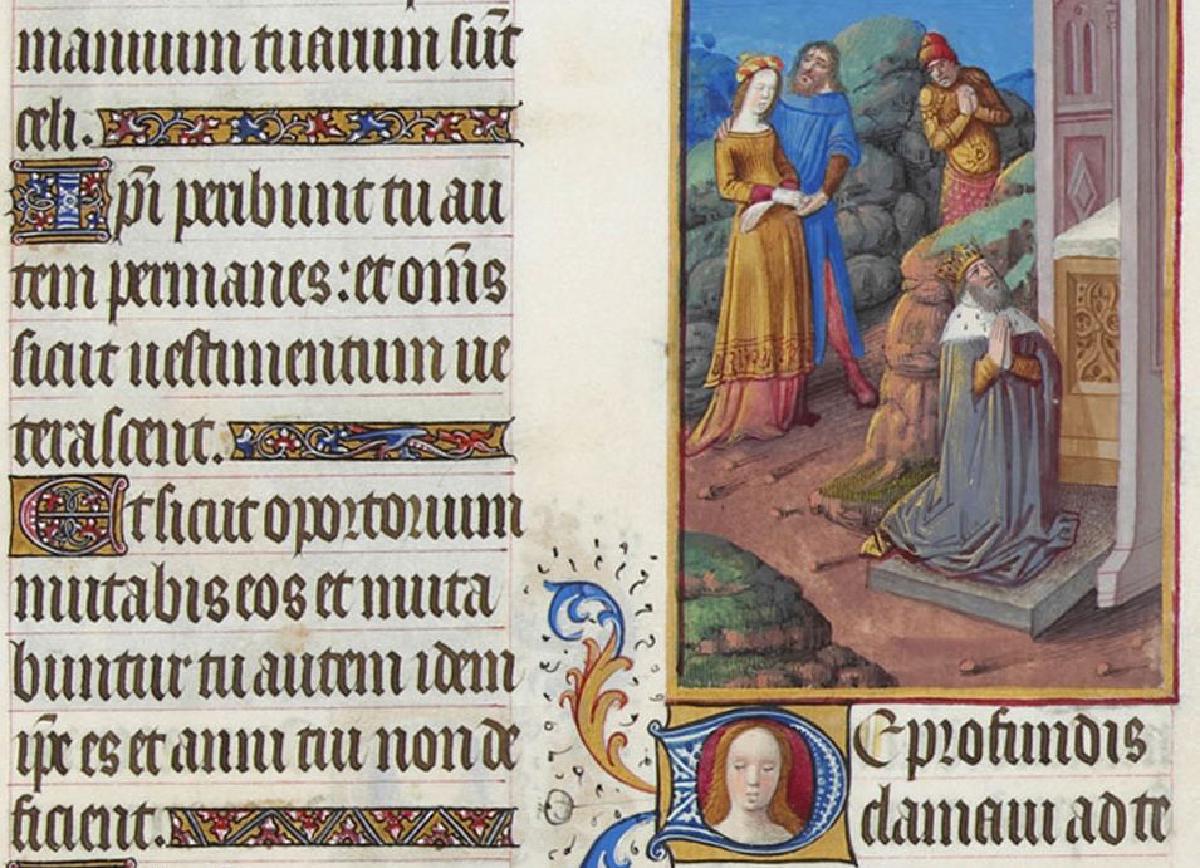 manuum tuarum sūt
celi.
Ip̄i peribunt tu au
tem permanes: et om̄s
sicut uestimentum ue
terascent.
Et sicut oportorium
mutabis eos et muta
buntur tu autem idem
ip̄e es et anni tui non de
ficient.
De profundis
clamaui ad te